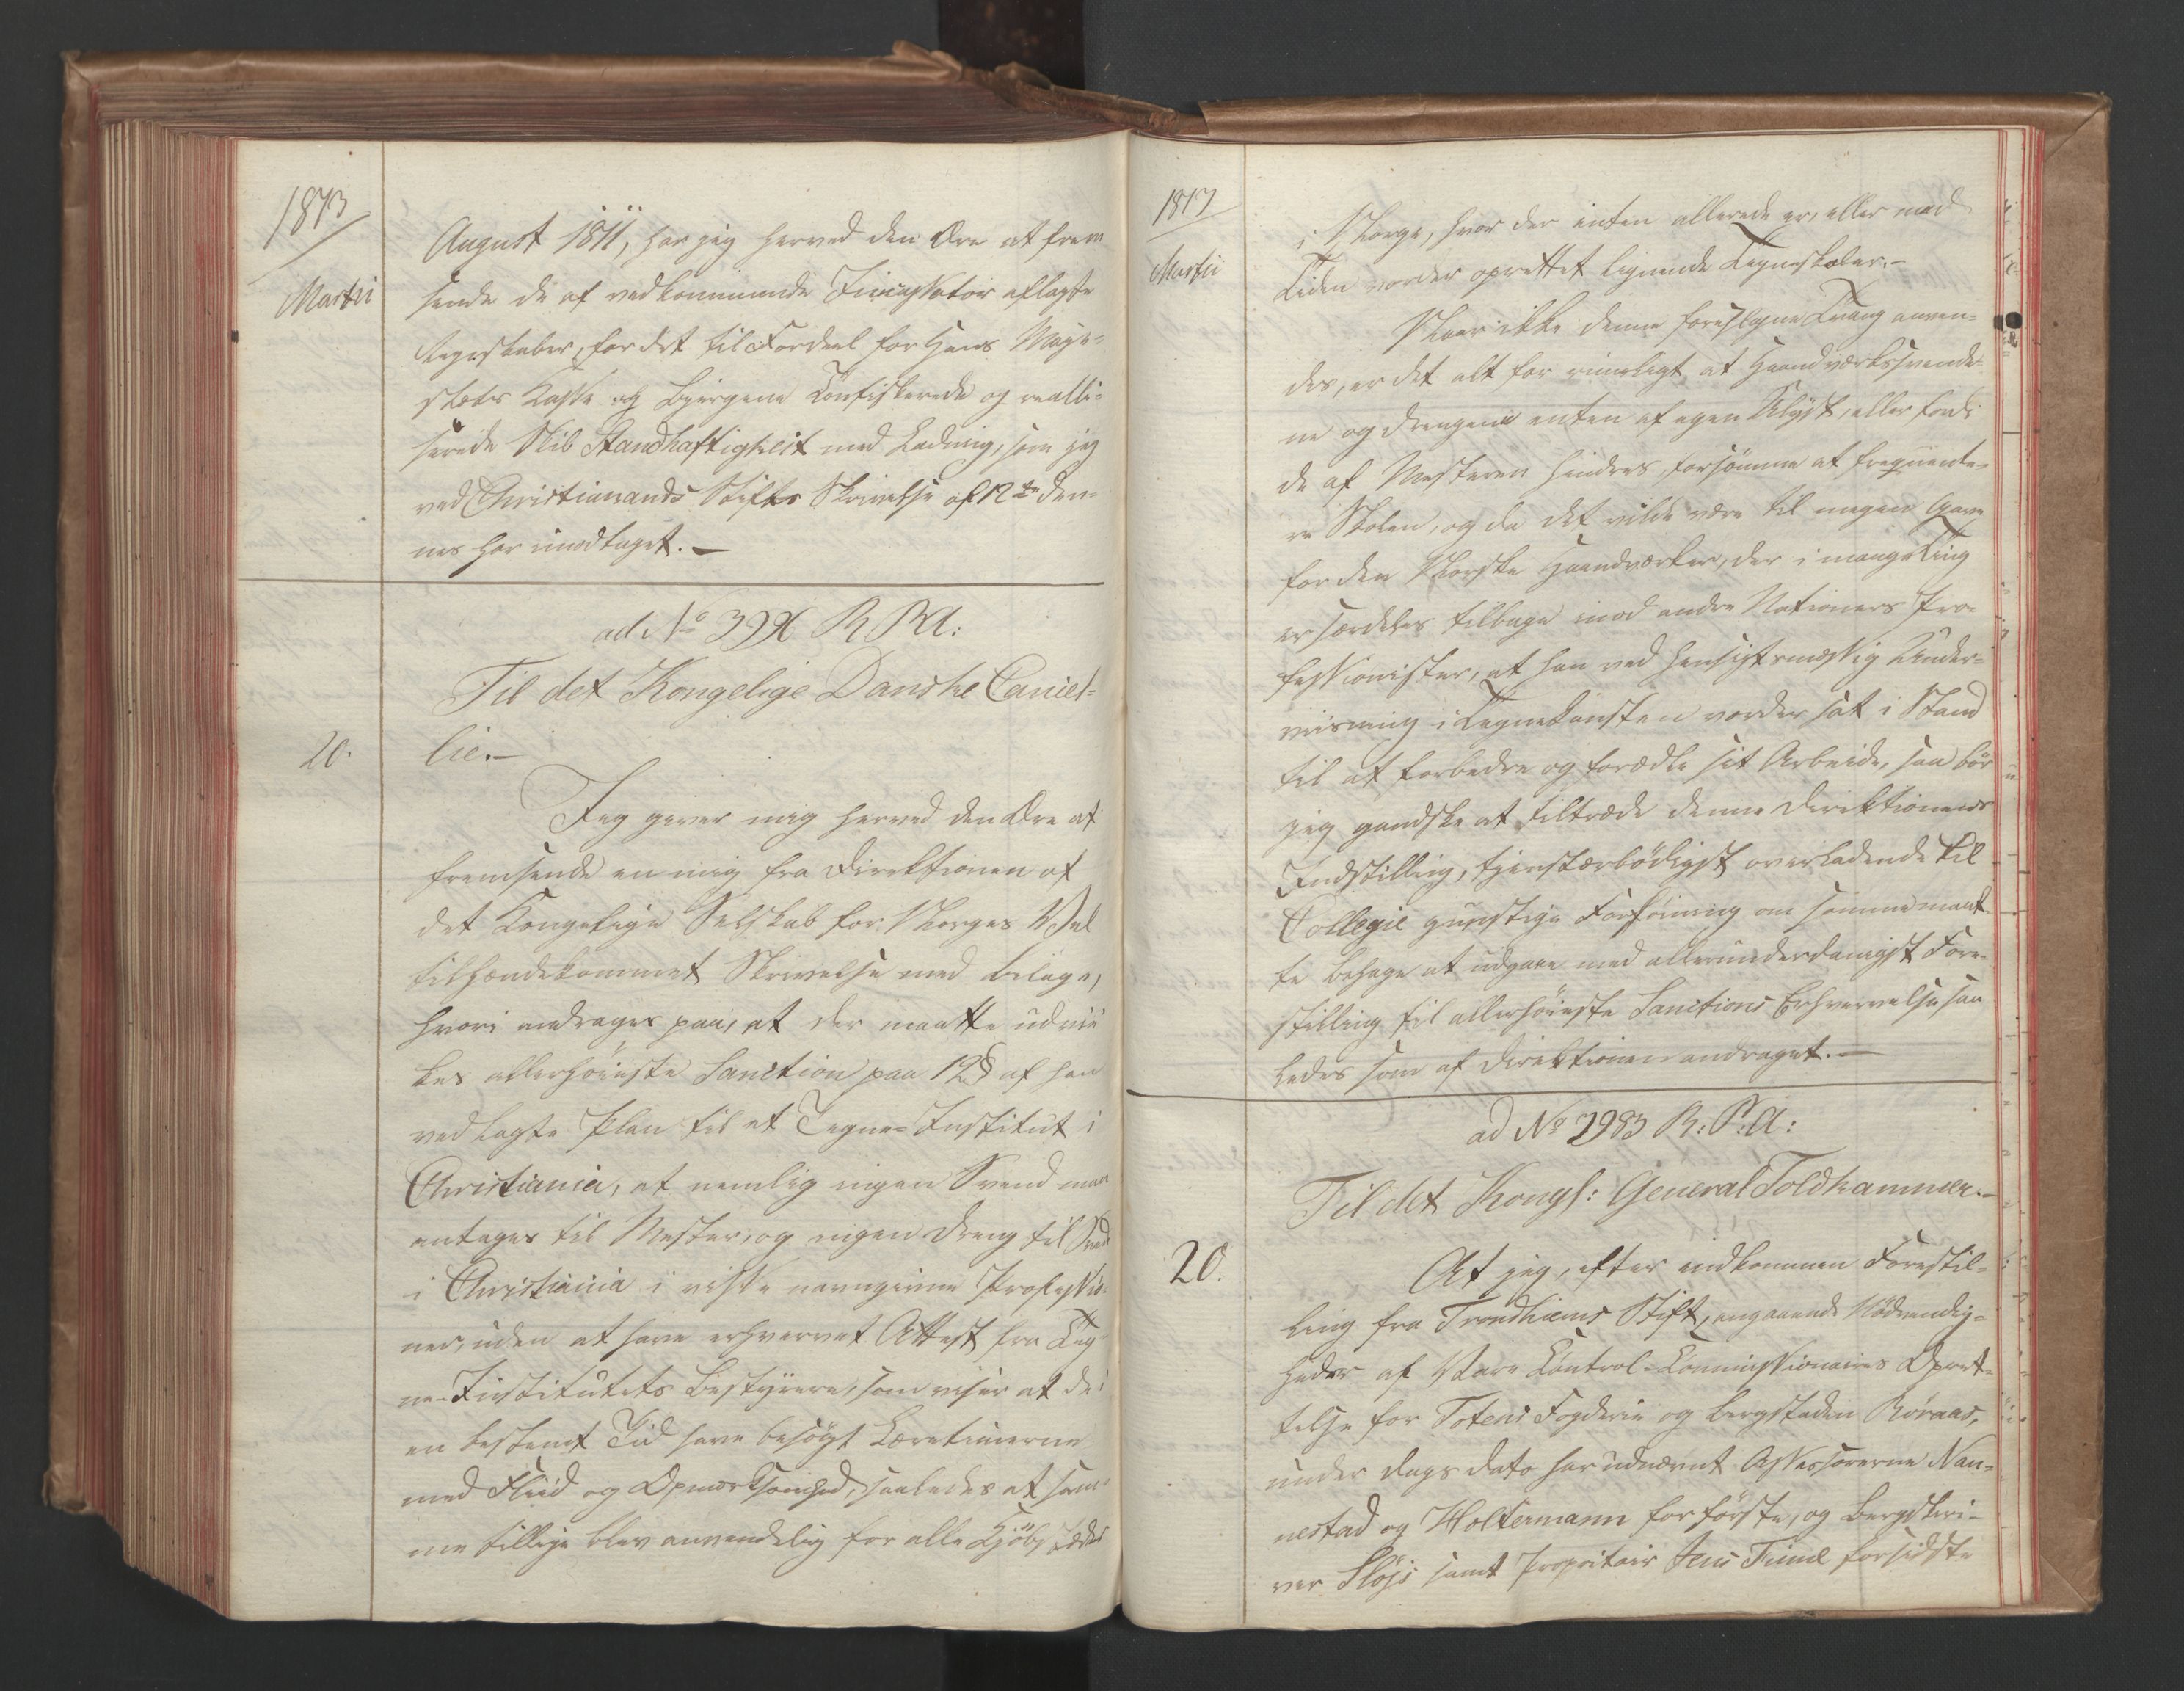 1813
Martii
August 1811, har jeg herved den Ære at frem
sende de af vedkommende Inqvisitor aflagte
Regnskaber, for det til Fordeel for Hans Maje-
stæts Kasse og Byergene Confiskerede og realli-
serede Skib Standhaftigheit med Ladning, som jeg
ved Christiansands Stifts Skrivelse af 12te den-
nes har modtaget.
ad No R P A:
Til det Kongelige Danske Cancel-
20. lie.
Jeg giver mig herved den Ære at
fremsende en mig fra Direktionen af
det Kongelige Selskab for Norges Vel
tilhændekommet Skrivelse med Bilage,
hvori andrages paa, at der maatte udvir
kes allerhøieste Sanction paa 12 § af hen
vedlagte Plan til et Tegne-Institut i
Christiania, at nemlig ingen Svend maa
antages til Mester, og ingen Dreng til Svend
i Christiania i visse navngivne Professio-
ner, uden at have erhvervet Attest fra Teg
ne-Institutets Bestyrere, som viser at de i
en bestemt Tid have besøgt Læretimerne
med Fliid og Opmærksomhed, saaledes at sam-
me tillige blev anvendelig for alle Kjøbstæder
1813
Martii
i Norge, hvor der enten allerede er, eller med
Tiden vorder oprettet lignende Tegneskoler.
Naar ikke denne foreslagne Tvang anven-
des, er det alt for rimeligt at Haandværkssvende-
ne og Drengene enten af egen Ulyst, eller fordi
de af Mesteren hindres, forsømme at frequente-
re Skolen, og da det vilde være til megen Gavn
for den Norske Haandværker, der i mange Ting
er særdeles tilbage mod andre Nationers Pro-
fessionister, at han ved hensigtsmæssig Under-
viisning i Tegnekunsten vorder sat i Stand
til at forbedre og forædle sit Arbeide, saa bør
jeg gandske at tiltræde denne Direktionens
Indstilling, tjenstærbødigst overladende til
Collegie gunstige Forføining om samme maat-
te behage at udgaae med allerunderdanigst Fore-
stilling til allerhøieste Sanctions Erhvervelse saa
ledes som af Direktionen andraget.
ad No 2983 R: P: A:
Til det Kongl: General Toldkammer.
20. At jeg, efter indkommen Forestil-
ling fra Trondhiems Stift, angaaende Nødvendig-
heden af Vare Control-Commissionairs Opret-
telse for Totens Fogderie og Bergstaden Röraas,
under Dags Dato har udnævnt Assessorerne Nan-
nestad og Holtermann for første, og Bergskri-
ver Fløjs samt Proprietair Jens Finne for sidste